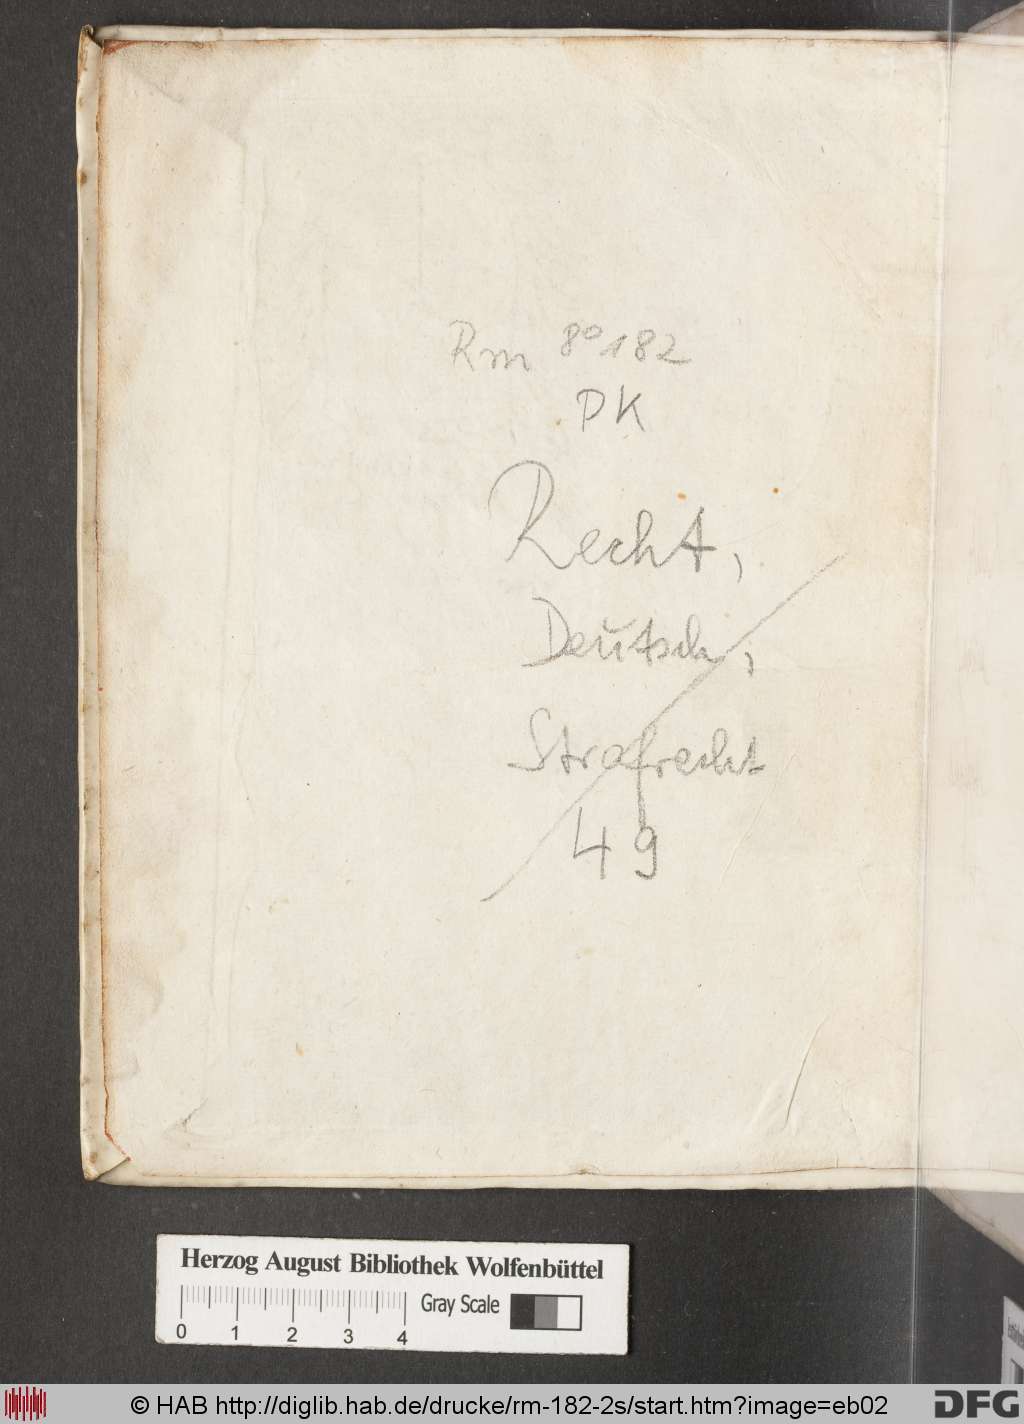 Rm 8° 182
PK
Recht,
Deutsch,
Strafrecht
49
Herzog August Bibliothek Wolfenbüttel
Gray Scale
0 1 2 3 4
© HAB http://diglib.hab.de/drucke/rm-182-2s/start.htm?image=eb02
DFG